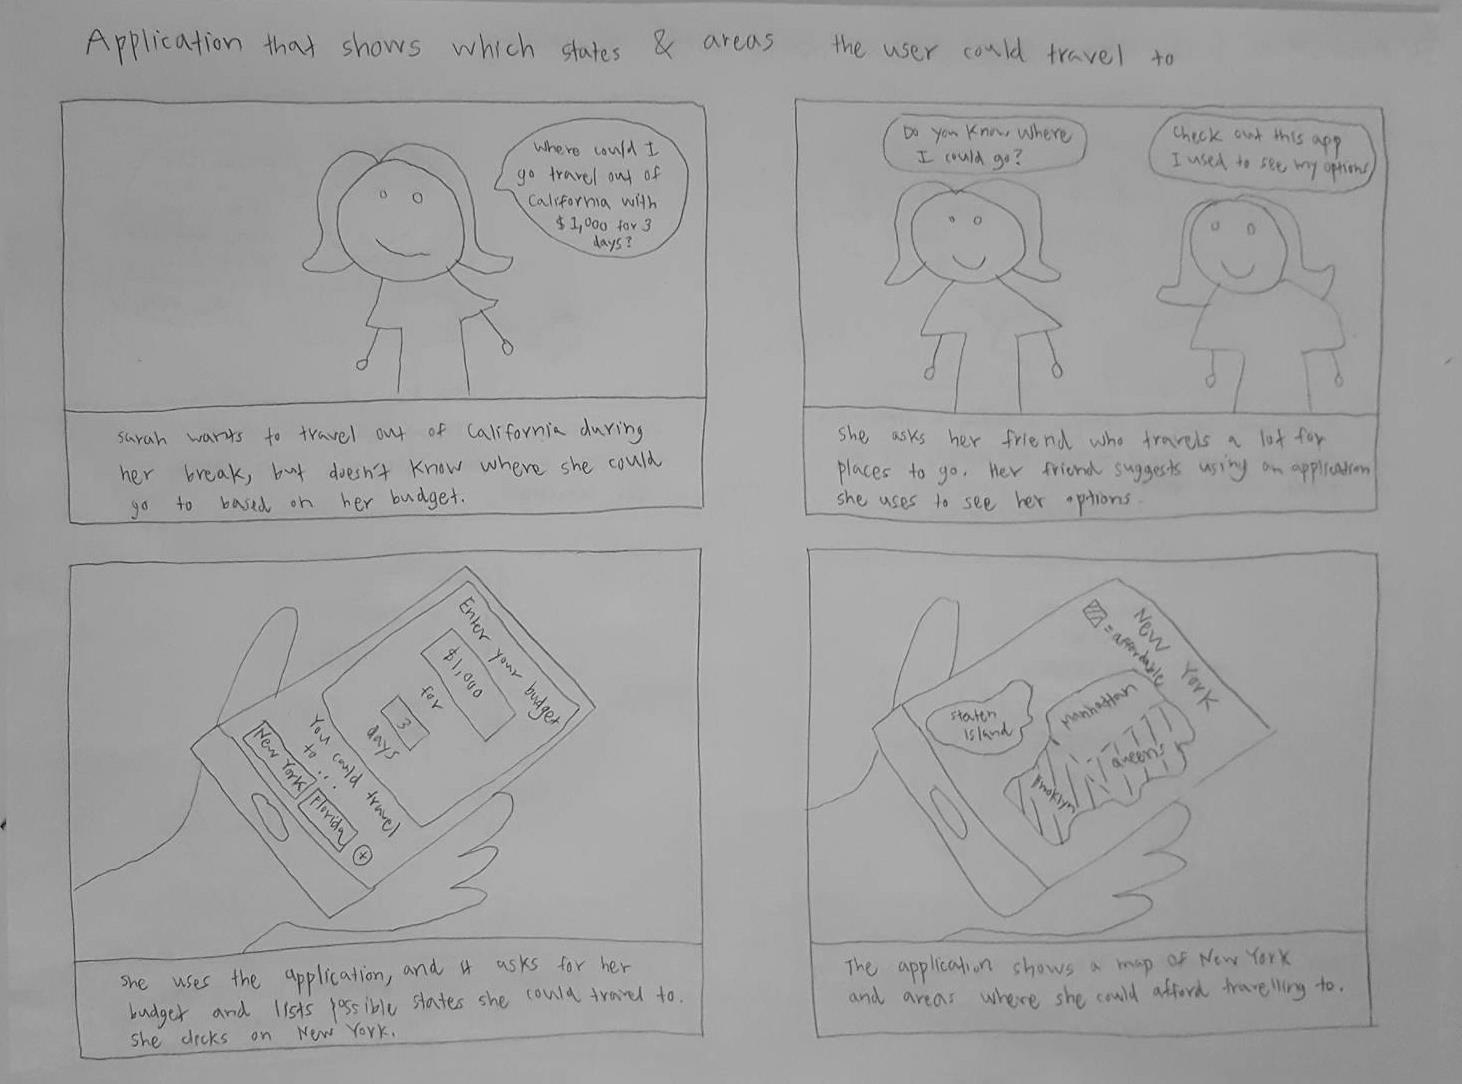 Application that shows which states & areas the user could travel to
Where could I
go travel out of
California with
$1,000 for 3
days?
Sarah wants to travel out of California during
her break, but doesn't know where she could
go to based on her budget.
Do you know where
I could go?
Check out this app
I used to see my options
She asks her friend who travels a lot for
places to go. Her friend suggests using an application
she uses to see her options.
Enter your budget
$1,000
for
3
days
You could travel
to...
New York
Florida
+
She uses the application, and it asks for her
budget and lists possible states she could travel to.
She clicks on New York.
New York
= affordable
Staten
Island
Manhattan
Queens
Brooklyn
The application shows a map of New York
and areas where she could afford travelling to.